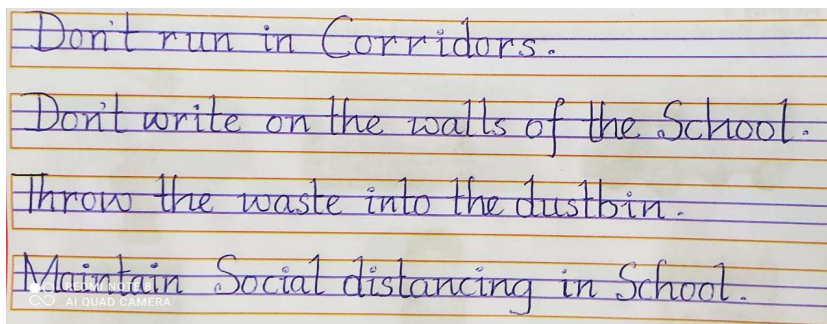 Don't run in Corridors.
Don't write on the walls of the School.
Throw the waste into the dustbin.
Maintain Social distancing in School.
REDMI NOTE 8
AI QUAD CAMERA